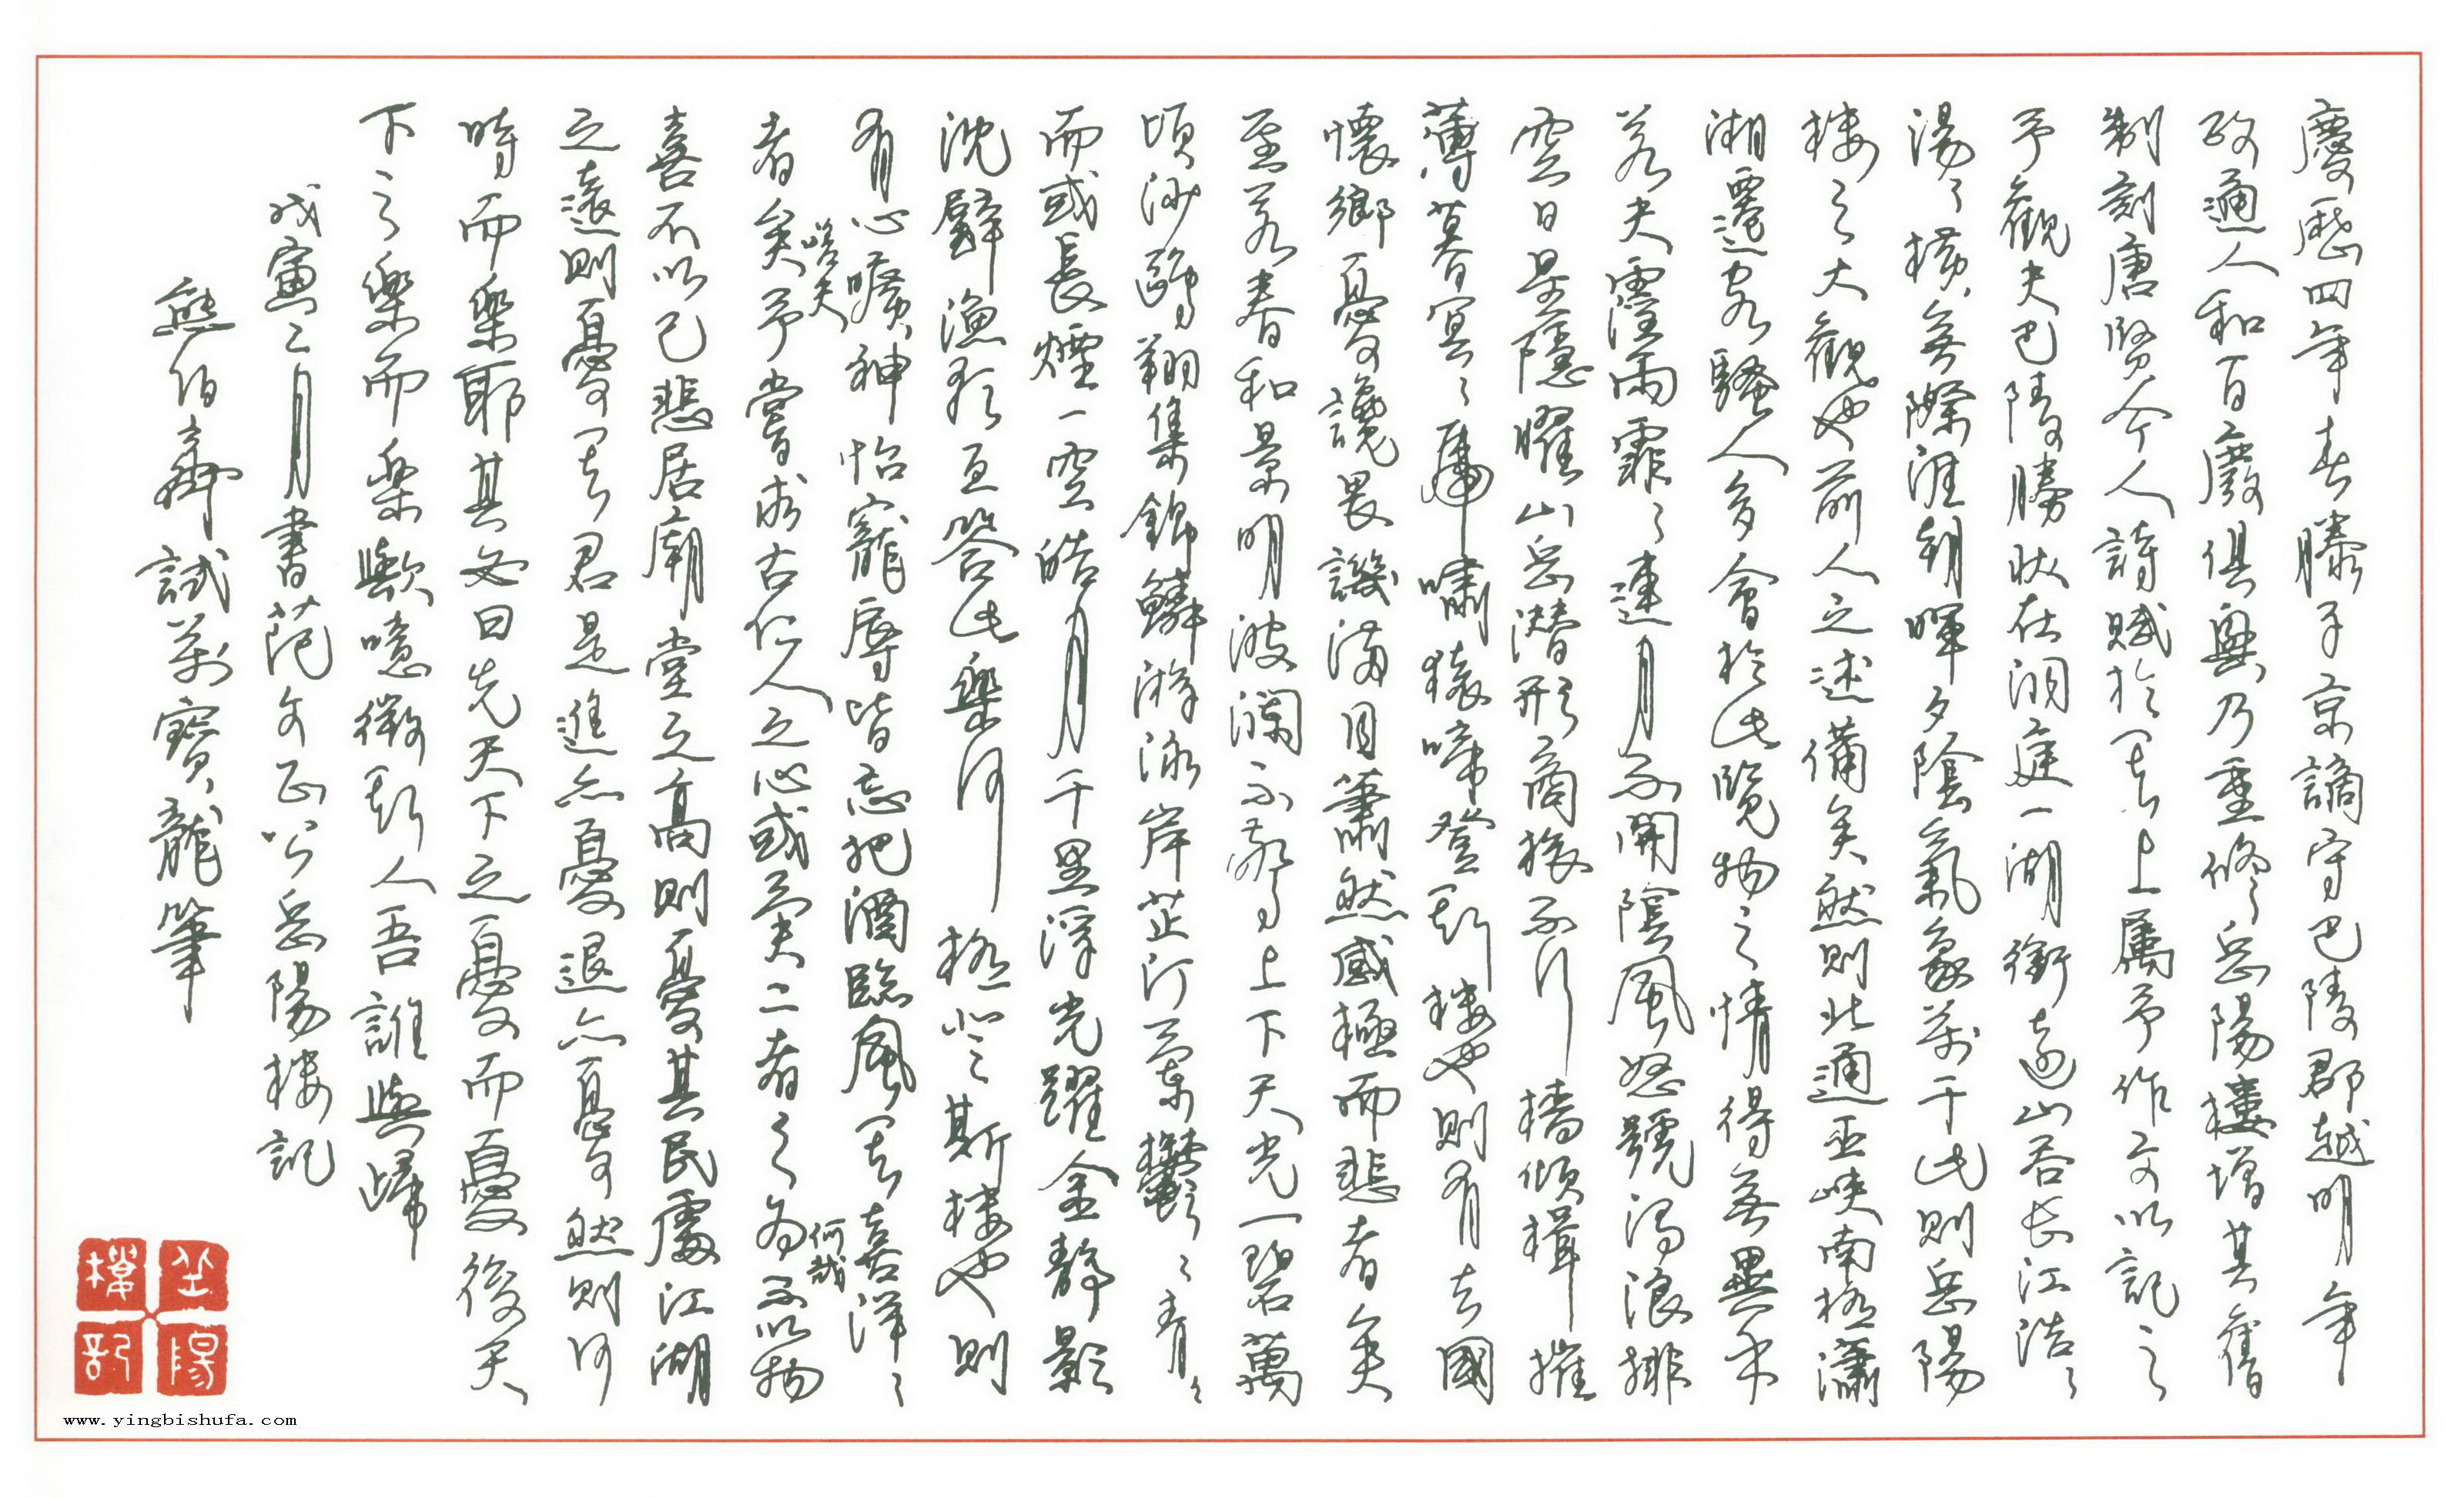 慶歷四年春滕子京謫守巴陵郡越明年
政通人和百廢俱興乃重修岳陽樓增其舊
制刻唐賢今人詩賦於其上屬予作文以記之
予觀夫巴陵勝狀在洞庭一湖銜遠山吞長江浩々
湯々橫無際涯朝暉夕陰氣象萬千此則岳陽
樓之大觀也前人之述備矣然則北通巫峽南極瀟
湘遷客騷人多會於此覽物之情得無異乎
若夫霪雨霏々連月不開陰風怒號濁浪排
空日星隱曜山岳潛形商旅不行檣傾楫摧
薄暮冥々虎嘯猿啼登斯樓也則有去國
懷鄉憂讒畏譏滿目蕭然感極而悲者矣
至若春和景明波瀾不驚上下天光一碧萬
頃沙鷗翔集錦鱗游泳岸芷汀蘭鬱々青々
而或長煙一空皓月千里浮光躍金靜影
沈璧漁歌互答此樂何極登斯樓也則
有心曠神怡寵辱皆忘把酒臨風其喜洋々
者矣嗟夫予嘗求古仁人之心或異二者之為何哉不以物
喜不以己悲居廟堂之高則憂其民處江湖
之遠則憂其君是進亦憂退亦憂然則何
時而樂耶其必曰先天下之憂而憂後天
下之樂而樂歟噫微斯人吾誰與歸
戊寅二月書范文正公岳陽樓記
熊伯齊試萬寶龍筆
岳陽樓記
www.yingbishufa.com